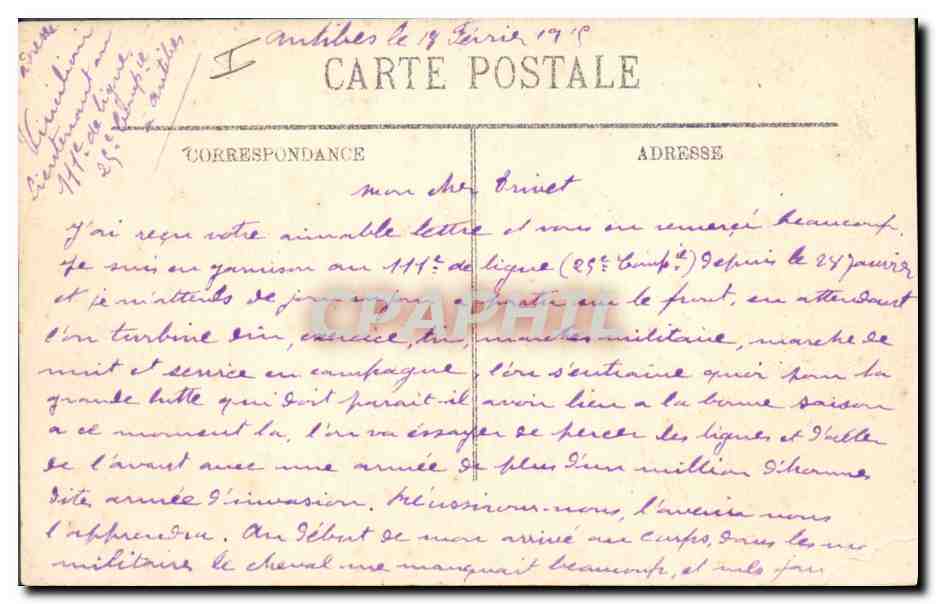 Antibes le 18 Février 1915
adresse
lieutenant au
111e de ligne
25e Comp ie
Antibes
I
CARTE POSTALE
CORRESPONDANCE
ADRESSE
mon cher Trivet
J'ai reçu votre aimable lettre et vous en remercie beaucoup.
Je suis en garnison au 111e de ligne (25e Comp ie) depuis le 24 Janvier
et je m'attends de jour en jour a partir sur le front, en attendant
l'on turbine exercice, tir, marches militaire, marche de
nuit et service en campagne, l'on s'entraine quoi pour la
grande lutte qui doit parait-il avoir lieu a la bonne saison
a ce moment la, l'on va éssayer de percer les lignes et d'aller
de l'avant avec une armée de plus d'un million d'hommes
dite armée d'invasion. Réussirons-nous, l'avenir nous
l'apprendra. Au début de mon arrivé au corps, dans les
militaires le cheval me manquait beaucoup, et
CPAPHIL